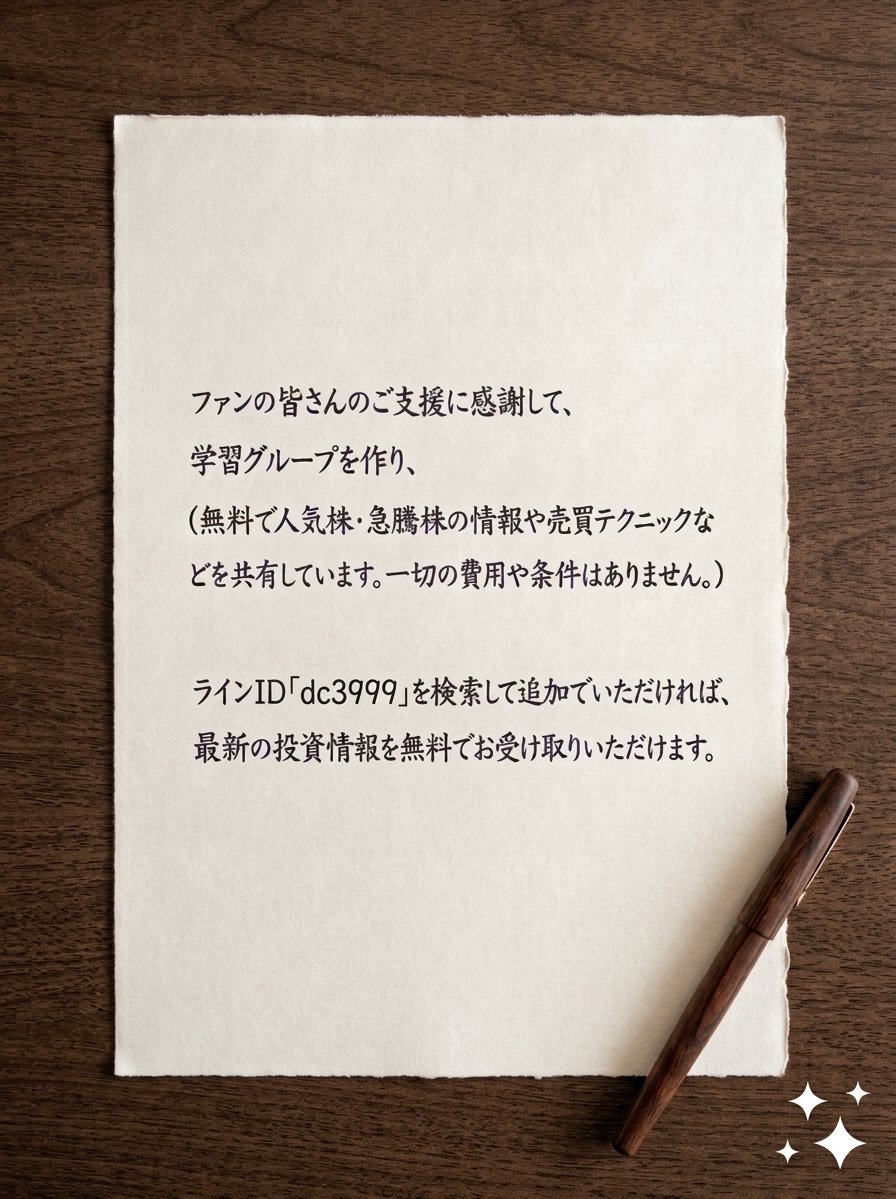 ファンの皆さんのご支援に感謝して、
学習グループを作り、
(無料で人気株・急騰株の情報や売買テクニックな
どを共有しています。一切の費用や条件はありません。)
ラインID「dc3999」を検索して追加でいただければ、
最新の投資情報を無料でお受け取りいただけます。